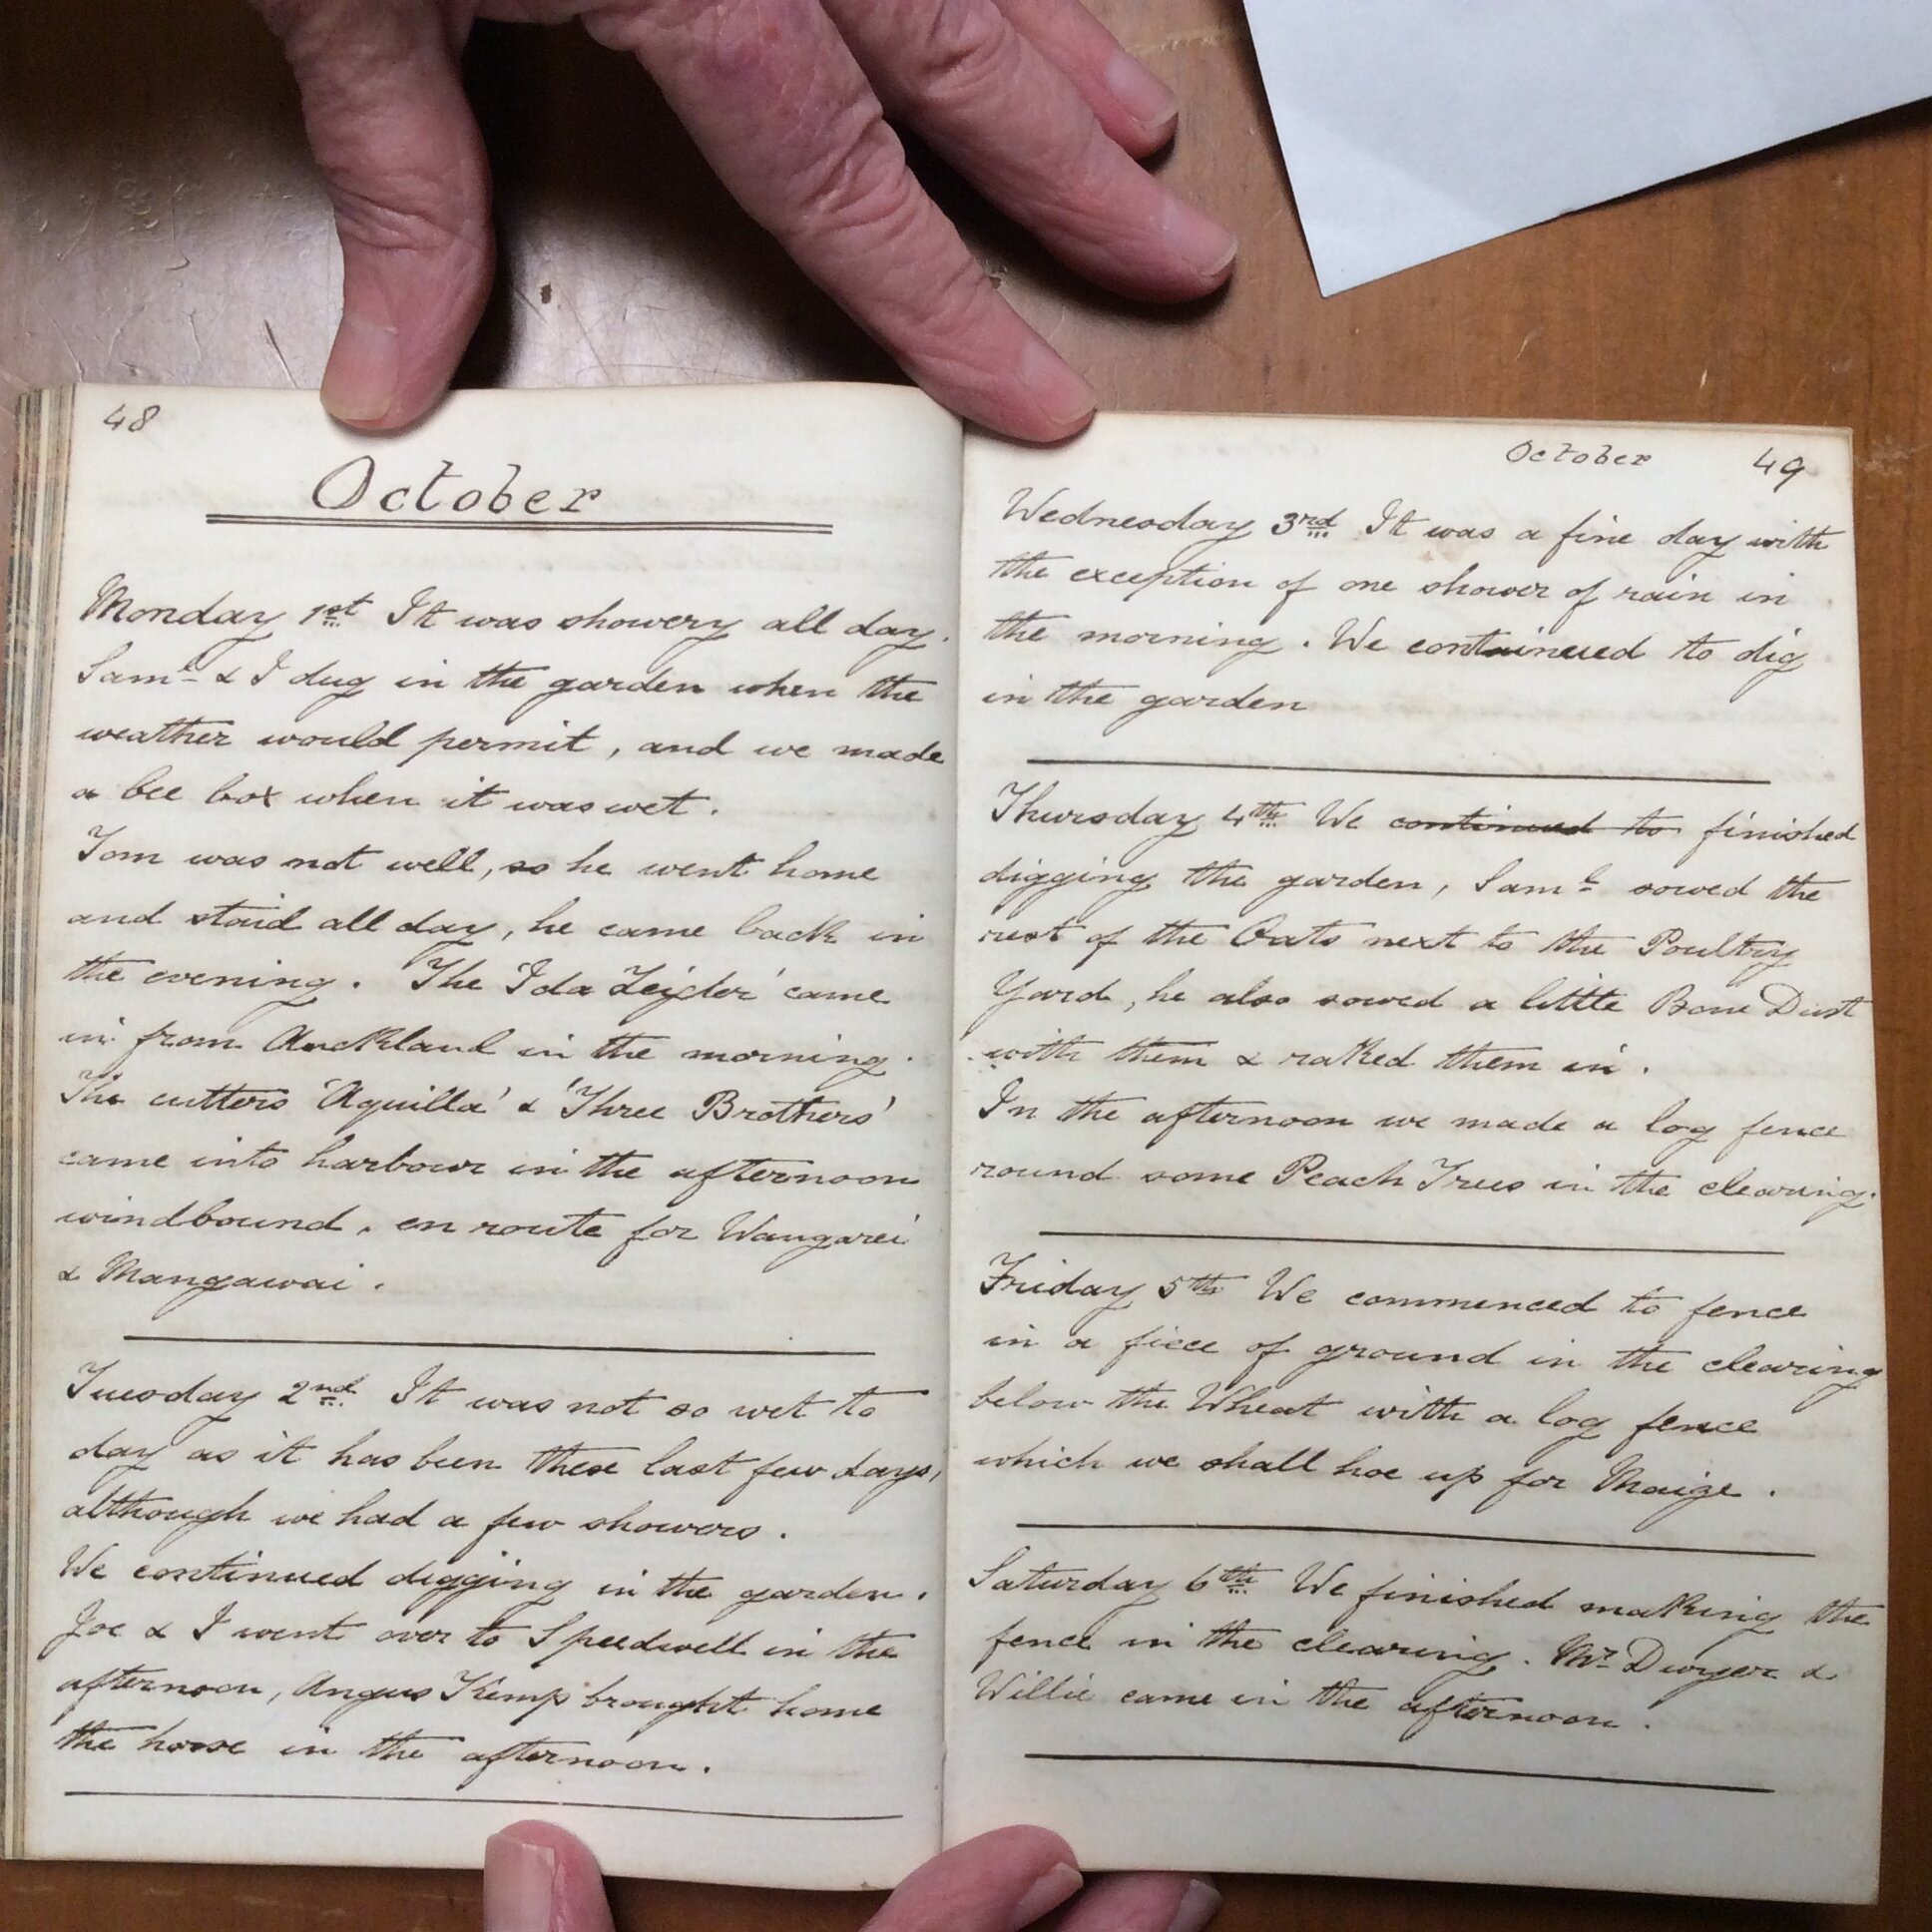 48
October
Monday 1st It was showery all day.
Saml & I dug in the garden when the
weather would permit, and we made
a bee box when it was wet.
Tom was not well, so he went home
and staid all day, he came back in
the evening. The 'Ida Zeigler' came
in from Auckland in the morning.
The cutters 'Aquilla' & 'Three Brothers'
came into harbour in the afternoon
windbound, en route for Wangarei
& Mangawai.
Tuesday 2nd. It was not so wet to
day as it has been these last few days,
although we had a few showers.
We continued digging in the garden.
Joe & I went over to Speedwell in the
afternoon, Angus Kemp brought home
the horse in the afternoon.
October 49
Wednesday 3rd It was a fine day with
the exception of one shower of rain in
the morning. We contained to dig
in the garden
Thursday 4th We continued to finished
digging the garden, Saml sowed the
rest of the Oats next to the Poultry
Yard, he also sowed a little Bone Dust
with them & raked them in.
In the afternoon we made a log fence
round some Peach Trees in the clearing.
Friday 5th We commenced to fence
in a piece of ground in the clearing
below the Wheat with a log fence
which we shall hoe up for Maize.
Saturday 6th We finished making the
fence in the clearing. Mr Dwyer &
Willie came in the afternoon.